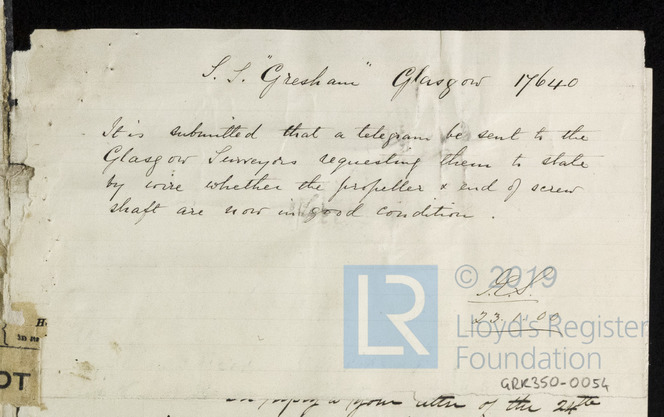 S. S. "Gresham" Glasgow 17640
It is submitted that a telegram be sent to the
Glasgow Surveyors requesting them to state
by wire whether the propeller & end of screw
shaft are now in good condition.
23.1.00
LR
© 2019
Lloyd's Register
Foundation
GRK350-0054
OT
your letter of the 24th